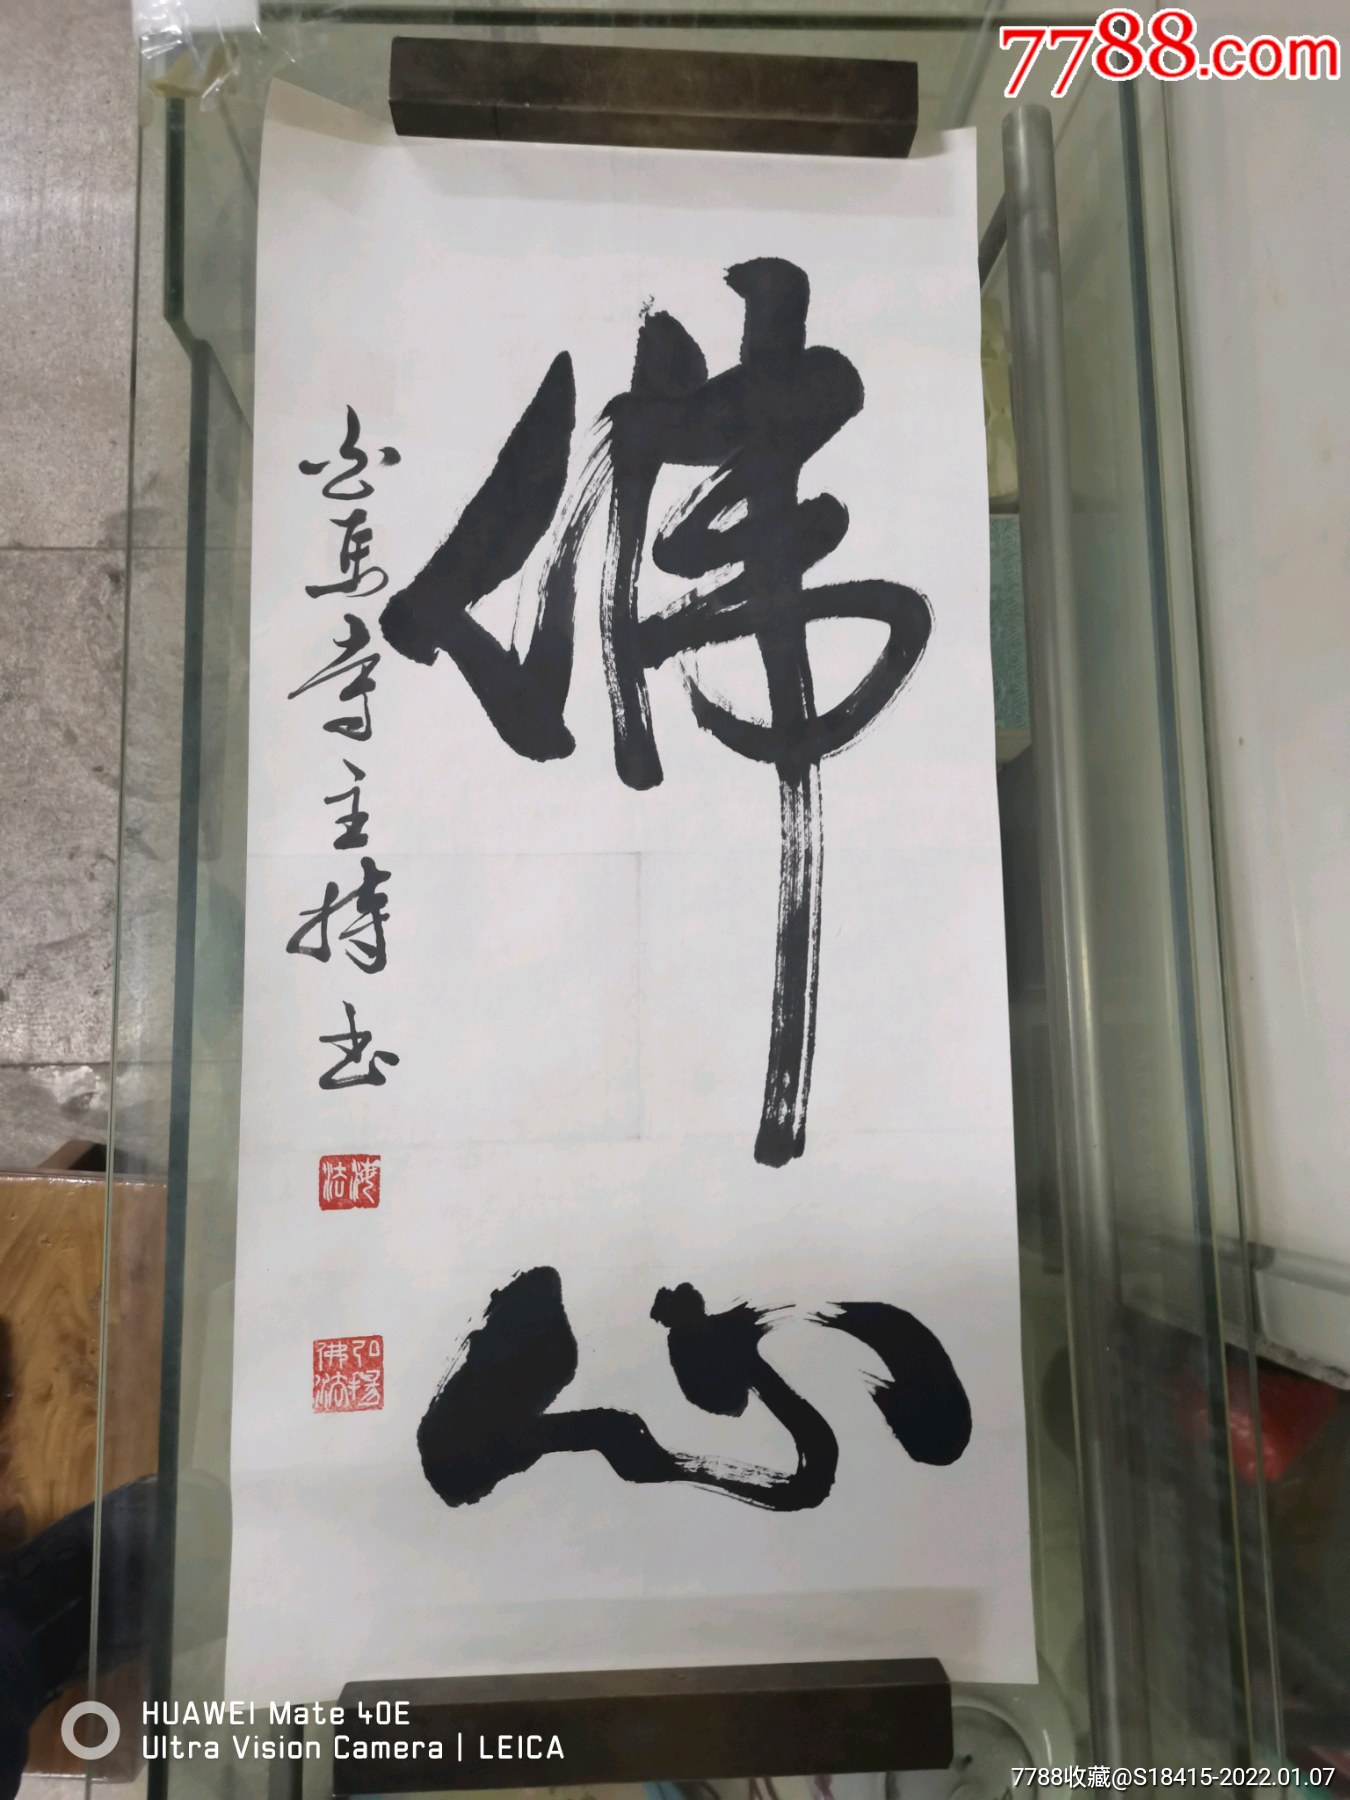 7788.com
佛心
白马寺主持书
海法
弘扬佛法
HUAWEI Mate 40E
Ultra Vision Camera | LEICA
7788收藏@S18415-2022.01.07